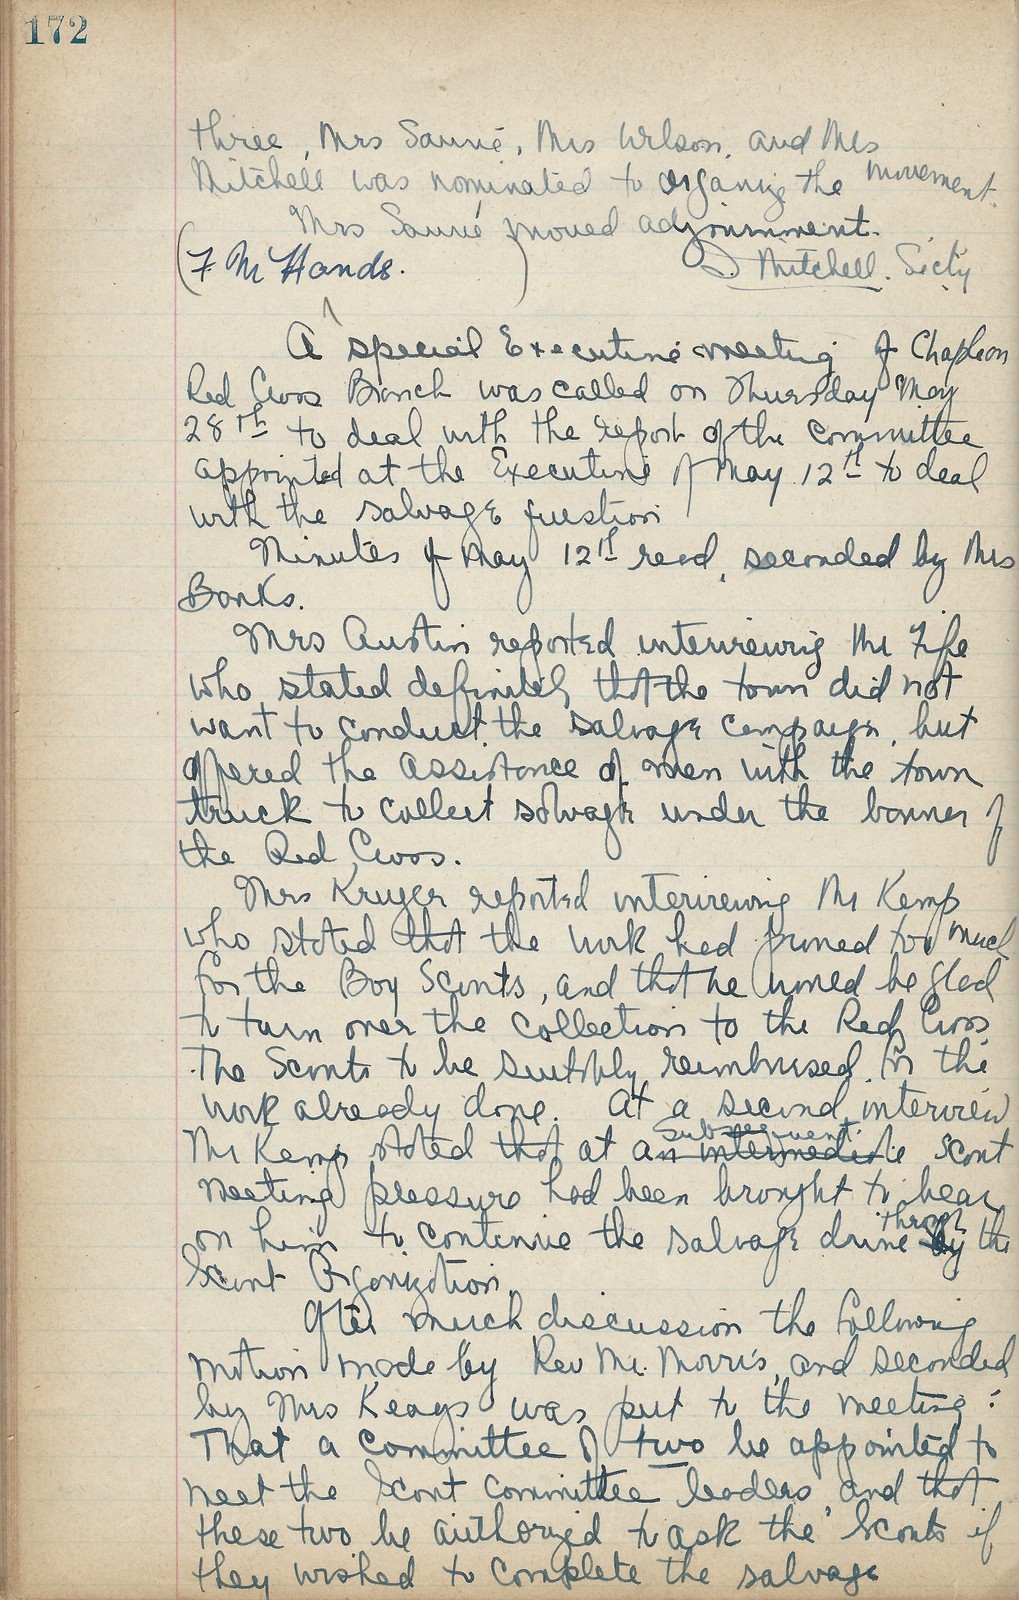 172
three, Mrs Saurié, Mrs Wilson, and Mrs
Mitchell was nominated to organize the movement.
Mrs Saurié moved adjournment.
(F M Hands.) Mitchell. Sec'ty
A special Executive meeting of Chapleau
Red Cross Branch was called on Thursday May
28th to deal with the report of the committee
appointed at the Executive of May 12th to deal
with the salvage question
Minutes of May 12th read, seconded by Mrs
Banks.
Mrs Austin reported interviewing Mr Fife
who stated definitely that the town did not
want to conduct the salvage campaign, but
offered the assistance of men with the town
truck to collect salvage under the banner of
the Red Cross.
Mrs Kruger reported interviewing Mr Kemp
who stated that the work had proved too much
for the Boy Scouts, and that he would be glad
to turn over the collection to the Red Cross
The Scouts to be suitably reimbursed for the
work already done. At a second interview
Mr Kemp stated that at an intermediate subsequent scout
meeting pressure had been brought to bear
on him to continue the salvage drive by through the
Scout Organization.
After much discussion the following
motion made by Rev Mr. Morris, and seconded
by Mrs Keays was put to the meeting:
That a committee of two be appointed to
meet the Scout committee leaders, and that
these two be authorized to ask the Scouts if
they wished to complete the salvage